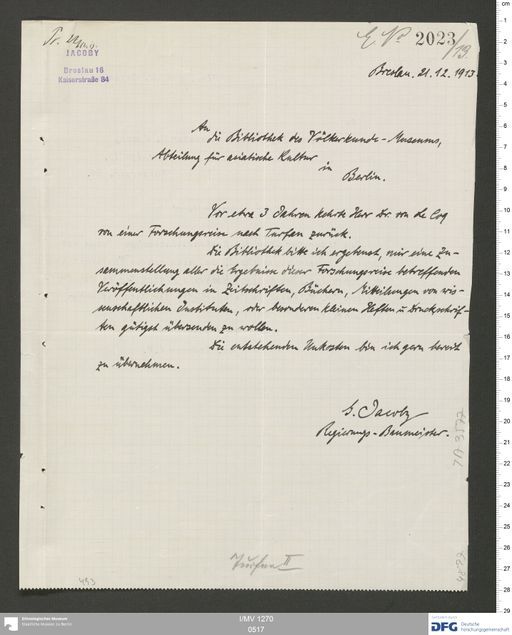 E. No 2023/13.
JACOBY
Breslau 16
Kaiserstraße 84
Breslau. 21.12.1913.
An
die Bibliothek des Völkerkunde-Museums,
Abteilung für asiatische Kultur
in
Berlin.
Vor etwa 3 Jahren kehrte Herr Dr. von le Coq
von einer Forschungsreise nach Turfan zurück.
Die Bibliothek bitte ich ergebenst, mir eine Zu-
sammenstellung aller die Ergebnisse dieser Forschungsreise betreffenden
Veröffentlichungen in Zeitschriften, Büchern, Mitteilungen von wis-
senschaftlichen Instituten, oder besonderen kleinen Heften u Druckschrif-
ten gütigst übersenden zu wollen.
Die entstehenden Unkosten bin ich gern bereit
zu übernehmen.
G. Jacoby
Regierungs-Baumeister.
Turfan II
453
Ethnologisches Museum
Staatliche Museen zu Berlin
I/MV 1270
0517
DFG Deutsche
Forschungsgemeinschaft